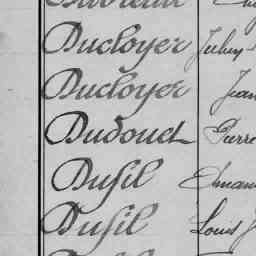 Ducloyer
Ducloyer Jean
Dudouet Pierre
Dufil
Dufil Louis